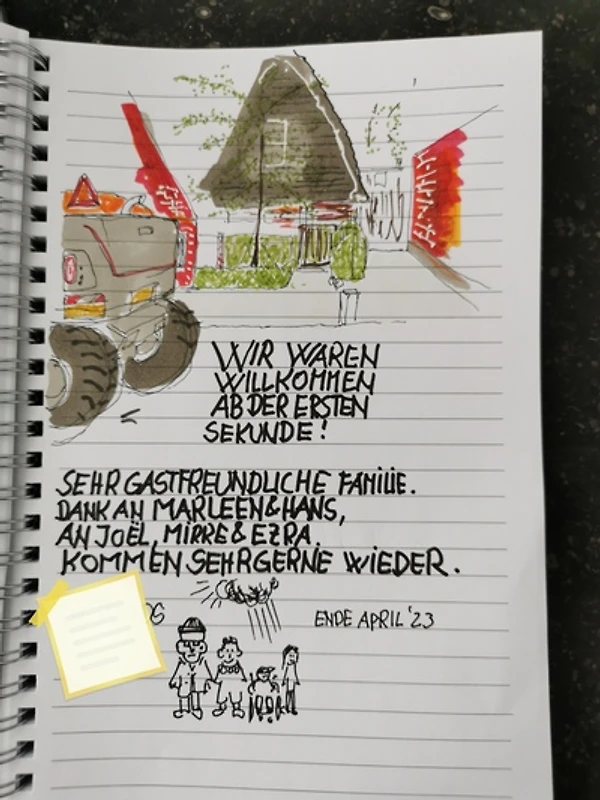 WIR WAREN
WILLKOMMEN
AB DER ERSTEN
SEKUNDE!
SEHR GASTFREUNDLICHE FAMILIE.
DANK AN MARLEEN & HANS,
AN JOËL, MIRKE & EZRA.
KOMMEN SEHR GERNE WIEDER.
ENDE APRIL '23